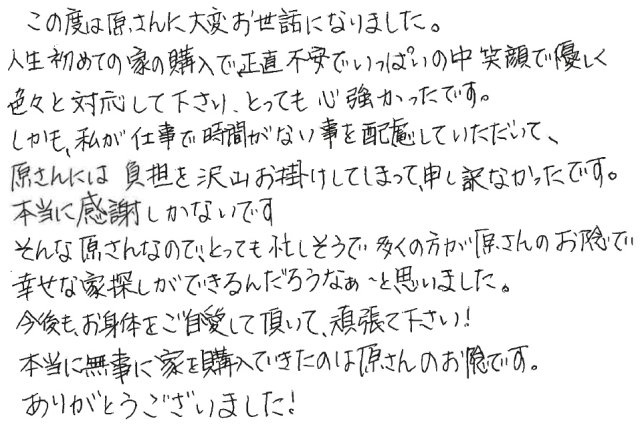 この度は原さんに大変お世話になりました。
人生初めての家の購入で、正直不安でいっぱいの中笑顔で優しく
色々と対応して下さり、とっても心強かったです。
しかも、私が仕事で時間がない事を配慮していただいて、
原さんには負担を沢山お掛けしてしまって、申し訳なかったです。
本当に感謝しかないです
そんな原さんなので、とっても忙しそうで多くの方が原さんのお陰で
幸せな家探しができるんだろうなぁ~と思いました。
今後も、お身体をご自愛して頂いて、頑張て下さい!
本当に無事に家を購入できたのは原さんのお陰です。
ありがとうございました!